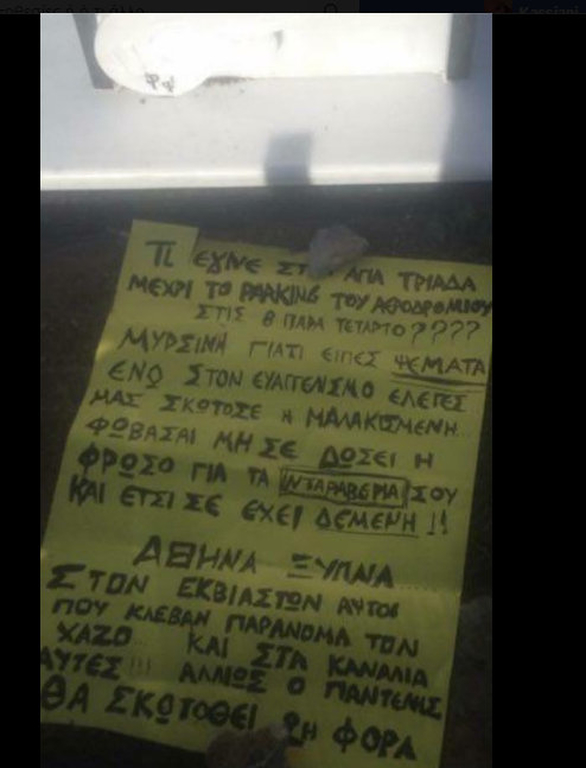 ΤΙ ΕΓΙΝΕ ΑΓΙΑ ΤΡΙΑΔΑ
ΜΕΧΡΙ ΤΟ PARKING ΤΟΥ ΑΕΡΟΔΡΟΜΙΟΥ
ΣΤΙΣ 8 ΠΑΡΑ ΤΕΤΑΡΤΟ????
ΜΥΡΣΙΝΗ ΓΙΑΤΙ ΕΙΠΕΣ ΨΕΜΑΤΑ
ΕΝΟ ΣΤΟΝ ΕΥΑΓΓΕΝΙΣΜΟ ΕΛΕΓΕΣ
ΜΑΣ ΣΚΟΤΟΣΕ Η ΜΑΛΑΚΙΣΜΕΝΗ...
ΦΩΒΑΣΑΙ ΜΗ ΣΕ ΔΩΣΕΙ Η
ΦΡΩΣΟ ΓΙΑ ΤΑ ΝΤΑΡΑΒΕΡΙΑ ΣΟΥ
ΚΑΙ ΕΤΣΙ ΣΕ ΕΧΕΙ ΔΕΜΕΝΗ !!
ΑΘΗΝΑ ΞΥΠΝΑ
ΣΤΟΝ ΕΚΒΙΑΣΤΩΝ ΑΥΤΟΙ
ΠΟΥ ΚΛΕΒΑΝ ΠΑΡΑΝΟΜΑ ΤΟΝ
ΧΑΖΟ... ΚΑΙ ΣΤΑ ΚΑΝΑΛΙΑ
ΑΥΤΕΣ!!! ΑΛΛΙΩΣ Ο ΠΑΝΤΕΛΗΣ
ΘΑ ΣΚΩΤΟΘΕΙ 2Η ΦΟΡΑ